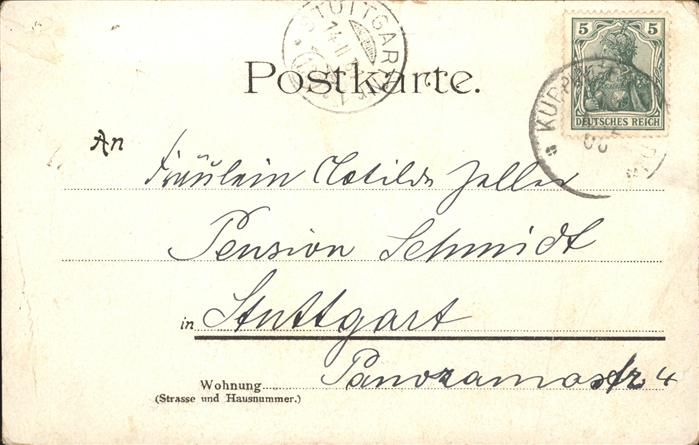 STUTTGART
Postkarte.
5 5
DEUTSCHES REICH
An
Fräulein Clotilde Zeller
Pension Schmidt
in Stuttgart
Panoramastr 4
Wohnung
(Strasse und Hausnummer.)